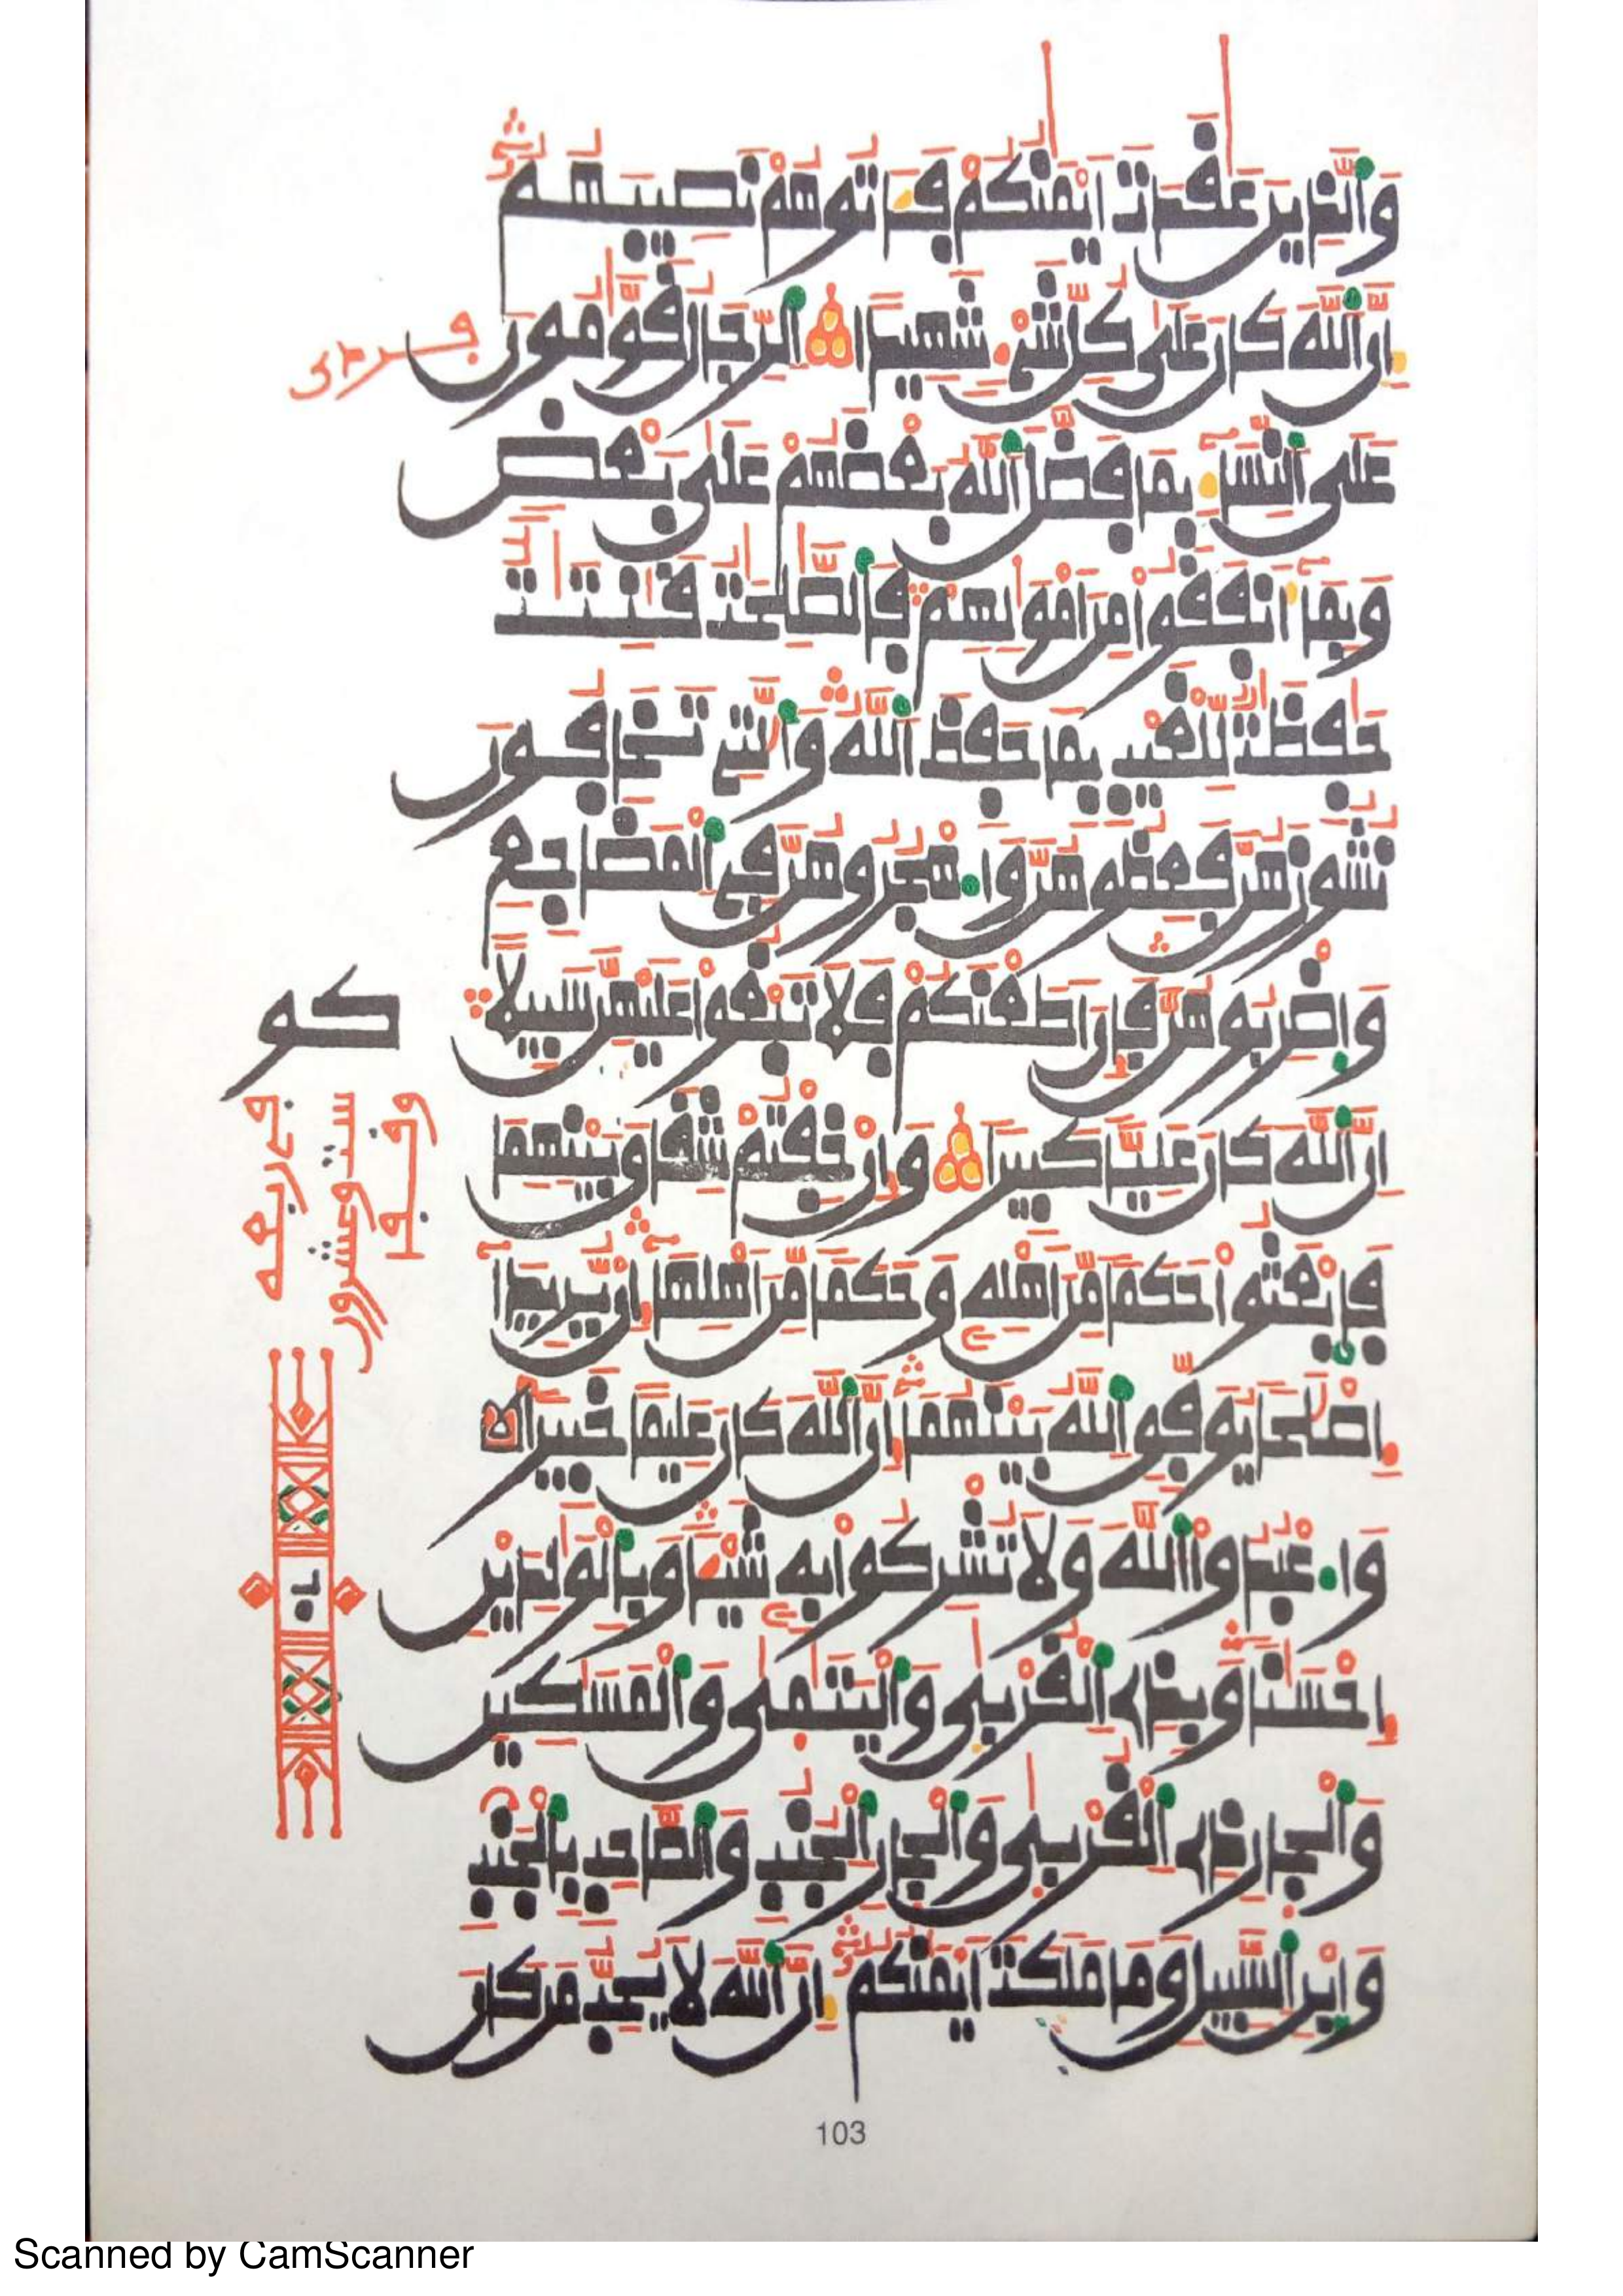 وَالذِينَ عَٰقَدَتَ اَيْمَٰنُكُمْ فَـَٔاتُوهُمْ نَصِيبَهُمُۥٓ
إِنَّ اَللَّهَ كَانَ عَلَىٰ كُلِّ شَےْءٖ شَهِيداً اَلرِّجَالُ قَوَّٰمُونَ
عَلَى اَلنِّسَآءِ بِمَا فَضَّلَ اَللَّهُ بَعْضَهُمْ عَلَىٰ بَعْضٖ
وَبِمَآ أَنفَقُواْ مِنَ اَمْوَٰلِهِمْ فَالصَّٰلِحَٰتُ قَٰنِتَٰتٌ
حَٰفِظَٰتٌ لِّلْغَيْبِ بِمَا حَفِظَ اَللَّهُ وَالَّٰتِے تَخَافُونَ
نُشُوزَهُنَّ فَعِظُوهُنَّ وَاهْجُرُوهُنَّ فِے اِلْمَضَاجِعِ
وَاضْرِبُوهُنَّ فَإِنَ اَطَعْنَكُمْ فَلَا تَبْغُواْ عَلَيْهِنَّ سَبِيلاً
اِنَّ اَللَّهَ كَانَ عَلِيّاً كَبِيراً وَإِنْ خِفْتُمْ شِقَاقَ بَيْنِهِمَا
فَابْعَثُواْ حَكَماً مِّنَ اَهْلِهِۦ وَحَكَماً مِّنَ اَهْلِهَآ إِنْ يُّرِيدَآ
إِصْلَٰحاً يُوَفِّقِ اِللَّهُ بَيْنَهُمَآ إِنَّ اَللَّهَ كَانَ عَلِيماً خَبِيراً
وَاعْبُدُواْ اُللَّهَ وَلَا تُشْرِكُواْ بِهِۦ شَيْـٔاً وَبِالْوَٰلِدَيْنِ
إِحْسَٰناً وَبِذِے اِلْقُرْبَىٰ وَالْيَتَٰمَىٰ وَالْمَسَٰكِينِ
وَالْجَارِ ذِے اِلْقُرْبَىٰ وَالْجَارِ اِلْجُنُبِ وَالصَّاحِبِ بِالْجَنۢبِ
وَابْنِ اِلسَّبِيلِ وَمَا مَلَكَتَ اَيْمَٰنُكُمُۥٓ إِنَّ اَللَّهَ لَا يُحِبُّ مَن كَانَ
103
Scanned by CamScanner